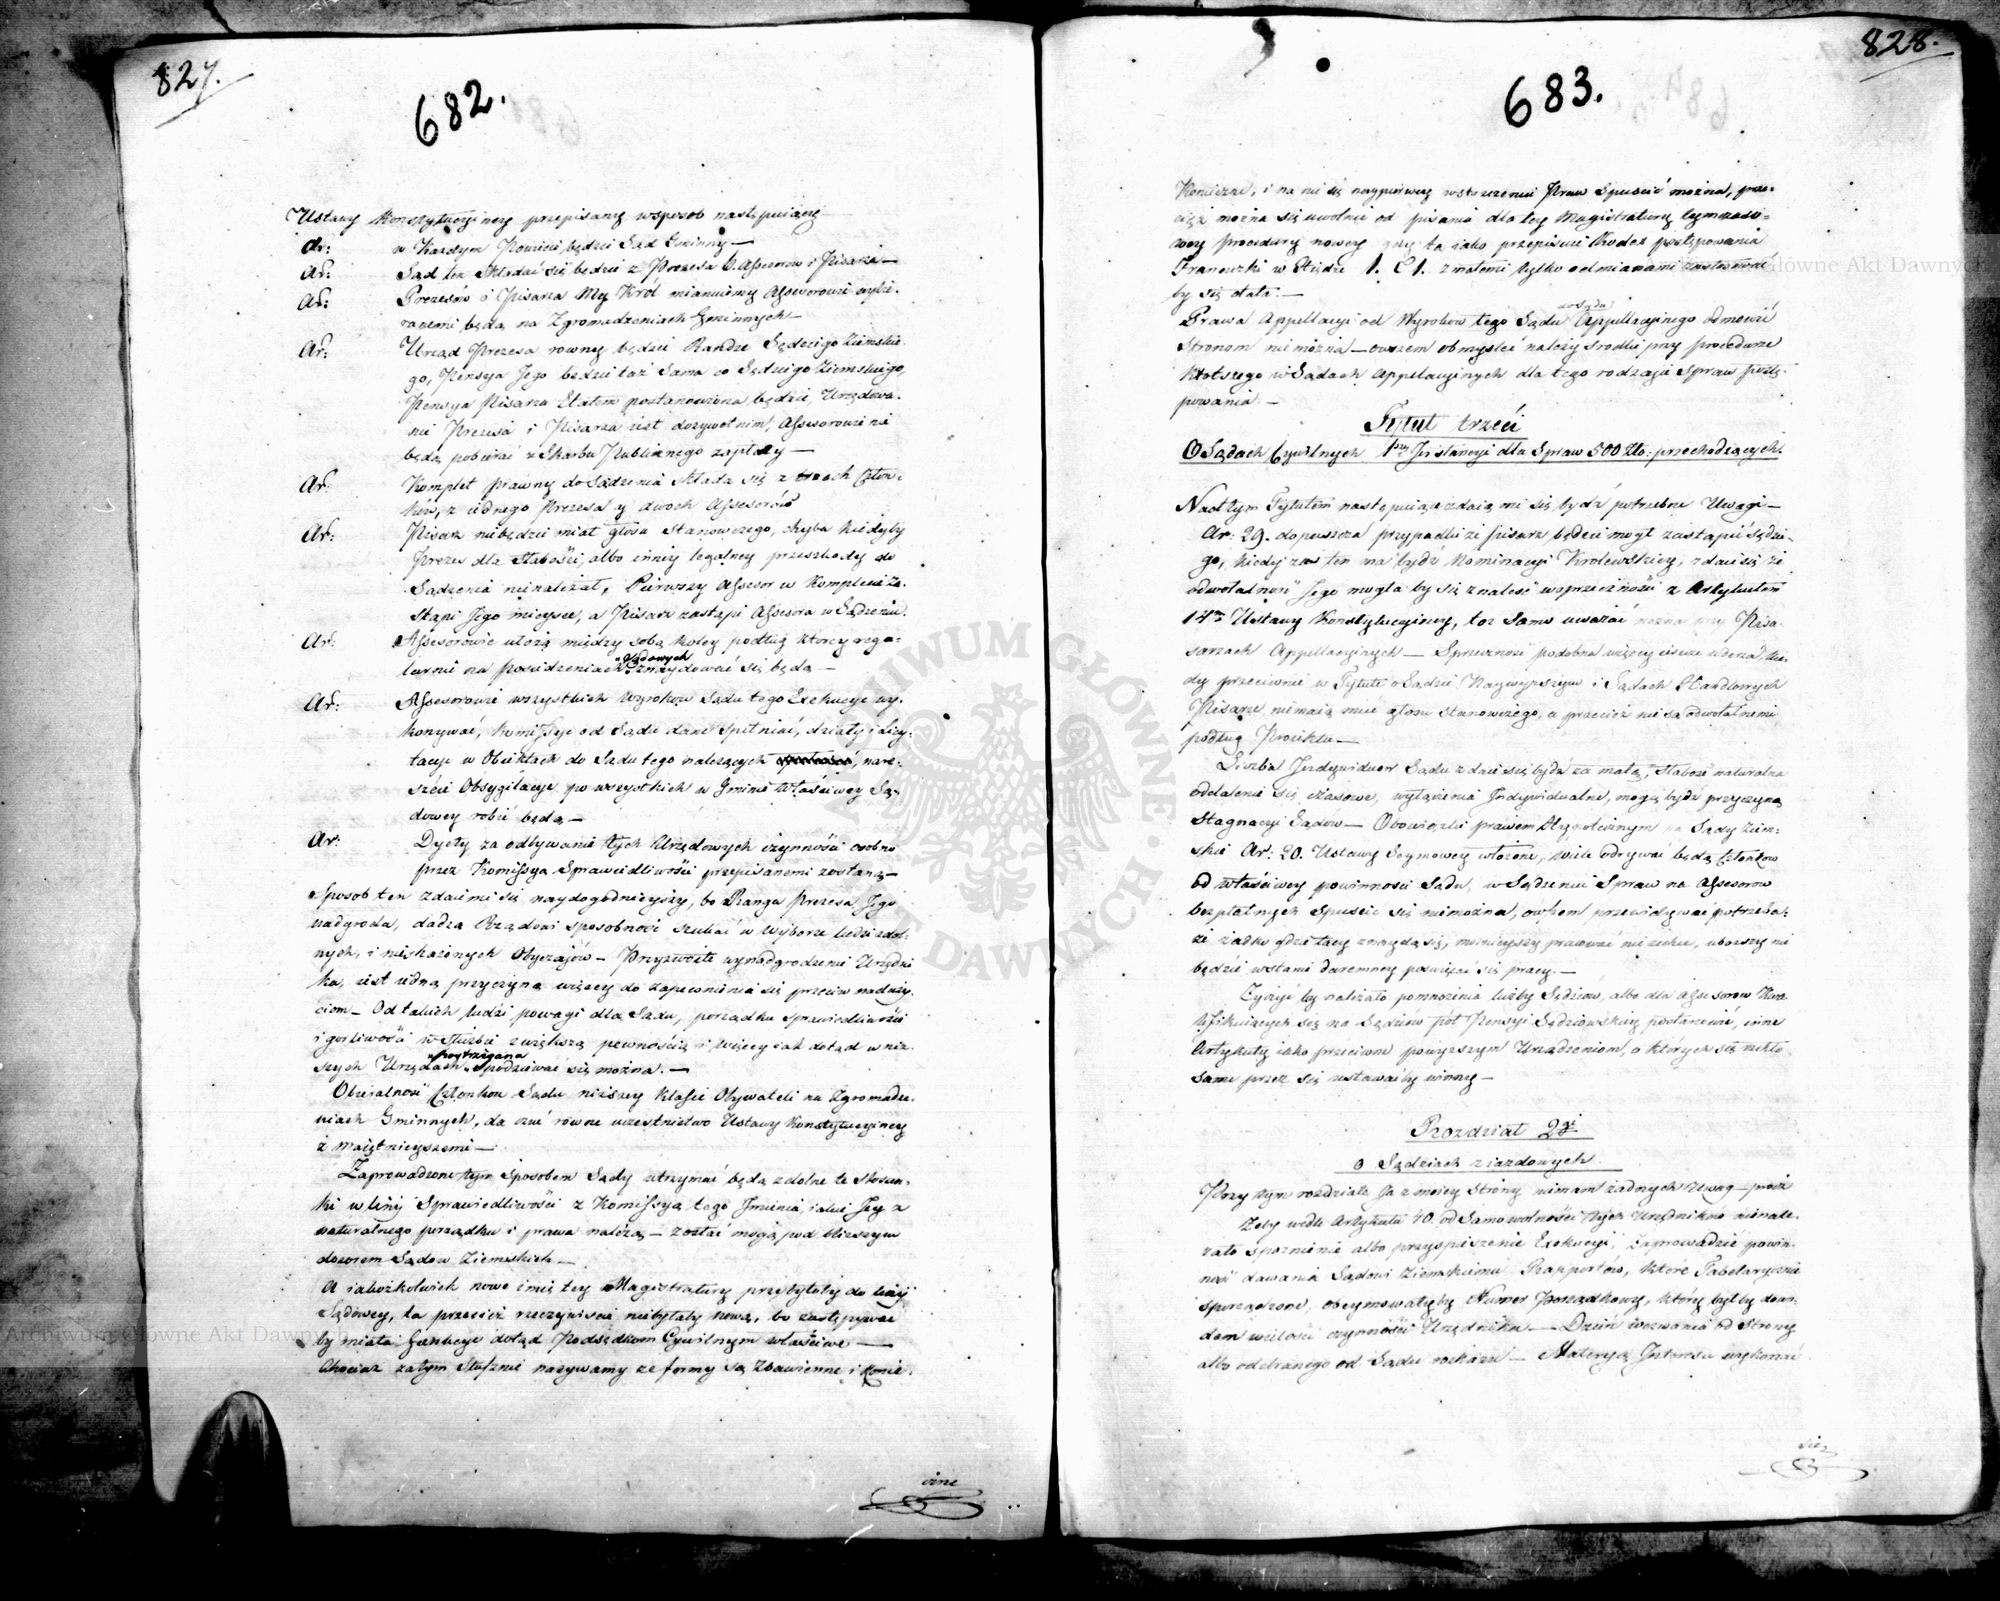 827.
682.
Ustawy Konstytucyiney przepisany wsposob następuiący
Ar: w Każdym Powiecie będzie Sąd Gminny —
Ar: Sąd ten Składać się będzie z Prezesa 6. Assessorów i Pisarza —
Ar: Prezesów i Pisarza My Król mianuiemy Assessorowie wybie-
ranemi będą na Zgromadzeniach Gminnych —
Ar: Urząd Prezesa rowny będzie Randze Sędziego Ziemskie-
go, Pensya Jego będzie taż Sama co Sędziego Ziemskiego,
Pensya Pisarza Etatem postanowiona będzie, Urzędowa-
nie Prezesa i Pisarza iest dożywotnim, Assessorowie nie
będą pobierać z Skarbu Publicznego zapłaty —
Ar: Komplet prawny do Sądzenia Składa się z trzech Człon-
ków, z iednego Prezesa y dwóch Assessorów
Ar: Pisarz niebędzie miał głosu Stanowczego, chyba kiedyby
Prezes dla Słabości, albo inney legalney przeszkody do
Sądzenia nienależał, Pierwszy Assessor w Komplecie Za-
stąpi Jego mieysce, a Pisarz zastąpi Assessora w Sądzeniu.
Ar: Assessorowie ułożą między sobą koley podług ktorey rega-
larnie na posiedzeniach Sądowych znaydować się będą —
Ar: Assessorowie wszystkich Wyroków Sądu tego Exekucye wy-
konywać, Komissye od Sądu dane Spełniać, działy i licy-
tacye w Obiektach do Sądu tego należących, nare-
szcie Obsygilacye po wszystkich w Gminie Właściwey Są-
dowey robić będą —
Ar: Dyety za odbywanie tych Urzędowych czynności osobno
przez Komissyą Sprawiedliwości przepisanemi zostaną —
Sposób ten zdaie mi się naydogodnieyszy, bo Ranga Prezesa, Jego
nadgroda, dadzą Rządowi sposobność szukać w wyborze ludzi zdol-
nych, i nieskażonych Obyczajów — Przyzwoite wynadgrodzenie Urzędni
ka, iest iedną przyczyną więcey do zapewnienia się przeciw naduży-
ciom — Od takich ludzi powagi dla Sądu, porządku Sprawiedliwości
i gorliwości w Służbie z większą pewnością i więcey iak dotąd w niż-
szych Urzędach postrzegana Spodziewać się można. —
Obieralność Członkow Sądu niższey Klassie Obywateli na Zgromadze-
niach Gminnych, da czuć równe uczestnictwo Ustawy Konstytucyiney
z maiętnieyszemi —
Zaprowadzone tym Sposobem Sądy utrzymać będą zdolne te Stosun-
ki w liniy Sprawiedliwości z Komissyą tego Jmienia, iakie Jey z
naturalnego porządku i prawa należą — zostać mogą pod bliższym
dozorem Sądów Ziemskich —
A iakożkolwiek nowe imie tey Magistratury przybyłoby do liniy
Sądowey, ta przecież rzeczywiscie niebyłaby nową, bo zastępywać
by miała Funkcye dotąd Podsędkom Cywilnym właściwe —
Chociaż zatym Słusznie nazywamy że formy są Zbawienne i Konie-
czne
828.
683.
Konieczne, i na nie się naypierwey wstoczeniu Praw Spuścić można, prze-
cież można się uwolnić od pisania dla tey Magistratury tymczaso-
wey procedury nowey gdy ta iako przepisuie Kodex postępowania
Francuzki w Xiędze 1. C 1. z małemi tylko odmianami zastosować
by się dała. —
Prawa Appellacyi od Wyroków tego Sądu do Sądu Appellacyinego odmówić
Stronom nie można — owszem obmyśleć należy środki przy procedurze
Krotszego w Sądach Appellacyinych dla tego rodzaju Spraw postę-
powania. —
Tytuł trzeci
O Sądach Cywilnych 1szey Jnstancyi dla Spraw 500 Zło: przechodzących.
Nad tym Tytułem następuiące zdaią mi się bydź potrzebne Uwagi —
Ar: 29. dopuszcza przypadki że pisarz będzie mogł zastąpić Sędzi-
go, kiedy zaś ten ma bydź Nominacyi Krolewskiey, zdaie się że
odwołalność Jego mogłaby się znaleść wsprzeczności z Artykułem
14m Ustawy Konstytucyiney, toż Samo uważać można przy Pisa-
rzach Appellacyinych — Sprzeczność podobna więcey ieszcze uderza, kie-
dy przeciwnie w Tytule o Sądzie Naywyższym i Sądach Handlowych
Pisarze niemaią mieć głosu Stanowczego, a przecież nie są odwołalnemi
podług Proiektu —
Liczba Jndywiduow Sądu zdaie się bydź za mała, Słabość naturalna
oddalenie się czasowe, wyłączenia Jndywidualne, mogą bydź przyczyną
Stagnacyi Sądów — Obowiązki prawem Hypotecznym na Sądy Ziem-
skie Ar: 20. Ustawy Seymowey włożone, wiele odrywać będą Członków
od właściwey powinności Sądu, w Sądzeniu Spraw na Assessorów
bezpłatnych Spuścić się niemożna, owszem przewidywać potrzeba,
że rzadko gdzie tacy znaydą się, możnieyszy pracować nie zechce, uboższy nie
będzie wstanie daremney poświęcić się pracy. —
Życzyć by należało pomnożenia liczby Sędziów, albo dla Assessorów Kwa-
lifikuiących się na Sędziów pół Pensyi Sędziowskiey postanowić, inne
Artykuły iako przeciwne powyższym Urządzeniom, o których się rzekło
same przez się ustawać by winny —
Rozdział 2gi
o Sędziach ziazdowych
Przy tym rozdziale Ja z moiey Strony niemam żadnych Uwag — procz
Żeby wedle Artykułu 40. od Samowolności tych Urzędników nienale-
żało spoznienie albo przyspieszenie Exekucyi, Zaprowadzić powin-
ność dawania Sądowi Ziemskiemu Rapportów, które Tabelarycznie
sporządzone, obeymowałyby Numer Porządkowy, który byłby dowo-
dem wielości czynności Urzędnika — Dzień wezwania od Strony
albo odebranego od Sądu rozkazu — Materyą Jnteressu wykonać
się z